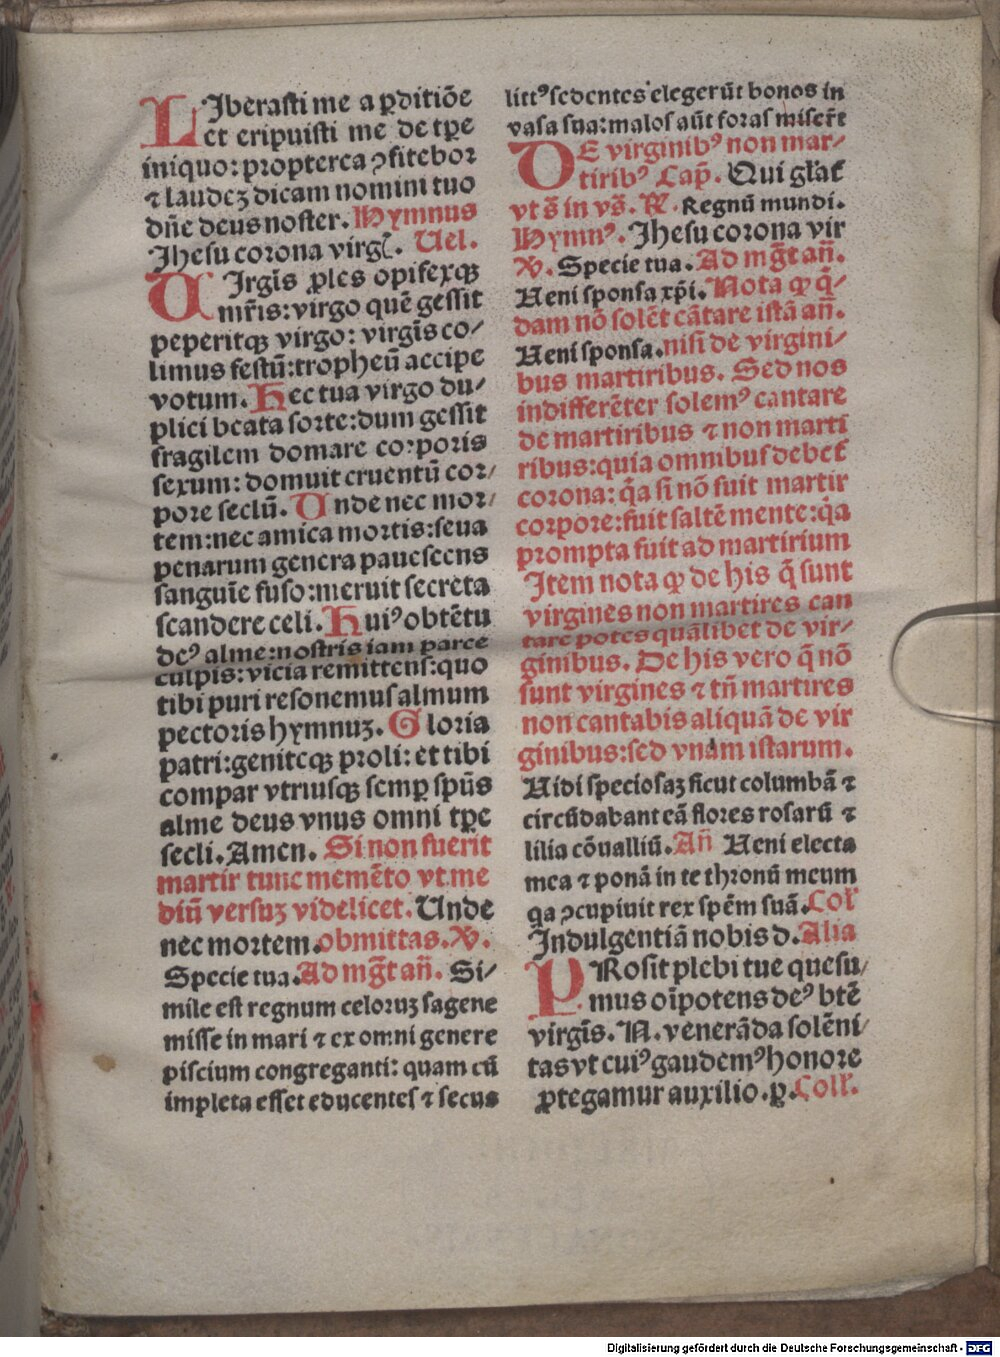 LIberasti me a ꝑditiōe
et eripuisti me de tꝑe
iniquo: propterea ꝯfitebor
⁊ laudeꝫ dicam nomini tuo
dn̄e deus noster. Hymnus
Jhesu corona virgī. Uel.
UIrgīs ꝓles opifexqꝫ
mr̄is: virgo quē gessit
peperitqꝫ virgo: virgīs co/
limus festū: tropheū accipe
votum. Hec tua virgo du/
plici beata sorte: dum gessit
fragilem domare corporis
sexum: domuit cruentū cor/
pore seclū. Unde nec mor/
tem: nec amica mortis: seua
penarum genera pauescens
sanguīe fuso: meruit secreta
scandere celi. Huiꝰ obtētu
deꝰ alme: nostris iam parce
culpis: vicia remittens: quo
tibi puri resonemus almum
pectoris hymnuꝫ. Gloria
patri: geniteqꝫ proli: et tibi
compar vtriusqꝫ semꝑ spūs
alme deus vnus omni tꝑe
secli. Amen. Si non fuerit
martir tunc memēto vt me
diū versuꝫ videlicet. Unde
nec mortem. obmittas. V̄.
Specie tua. Ad mḡt an̄. Si/
mile est regnum celoruꝫ sagene
misse in mari ⁊ ex omni genere
piscium congreganti: quam cū
impleta esset educentes ⁊ secus
littꝰ sedentes elegerūt bonos in
vasa sua: malos aūt foras miser̄t
DE virginibꝰ non mar/
tiribꝰ Cap̄. Qui gl'at
vt s̄ in vs̄. R̄. Regnū mundi.
Hymnꝰ. Jhesu corona vir
V̄. Specie tua. Ad mḡt an̄.
Ueni sponsa xp̄i. Nota ꝙ q̄/
dam nō solēt cātare istā an̄.
Ueni sponsa. nisi de virgini/
bus martiribus. Sed nos
indifferēter solemꝰ cantare
de martiribus ⁊ non marti
ribus: quia omnibus debet
corona: q̄a si nō fuit martir
corpore: fuit saltē mente: q̄a
prompta fuit ad martirium
Item nota ꝙ de his q̄ sunt
virgines non martires can
tare potes quālibet de vir/
ginibus. De his vero q̄ nō
sunt virgines ⁊ tn̄ martires
non cantabis aliquā de vir
ginibus: sed vnam istarum.
Uidi speciosaꝫ sicut columbā ⁊
circūdabant eā flores rosarū ⁊
lilia cōualliū. An̄ Ueni electa
mea ⁊ ponā in te thronū meum
qa ꝯcupiuit rex spēm suā. Col'
Indulgentiā nobis d. Alia
PRosit plebi tue quesu/
mus oīpotens deꝰ btē
virgīs. N. venerāda solēni/
tas vt cuiꝰ gaudemꝰ honore
ꝓtegamur auxilio. ꝑ. Coll'.
Digitalisierung gefördert durch die Deutsche Forschungsgemeinschaft - DFG